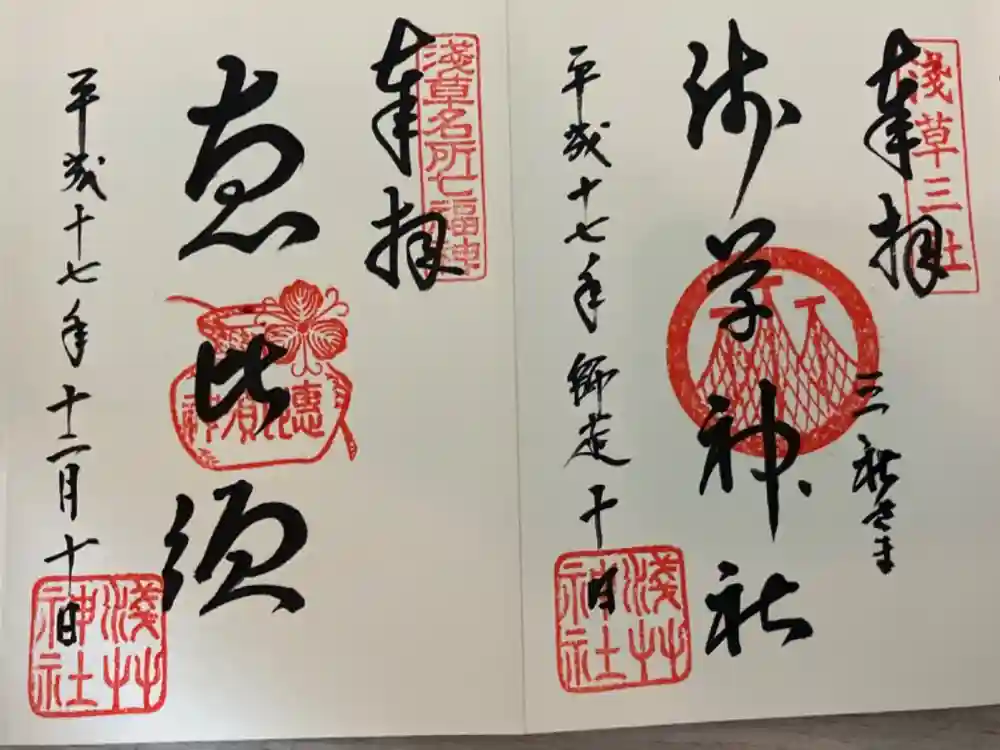 奉拝
淺草三社
三社さま
浅草神社
平成十七年師走十日
淺艸神社
奉拝
淺草名所七福神
恵比須
惠比須神
平成十七年十二月十日
淺艸神社